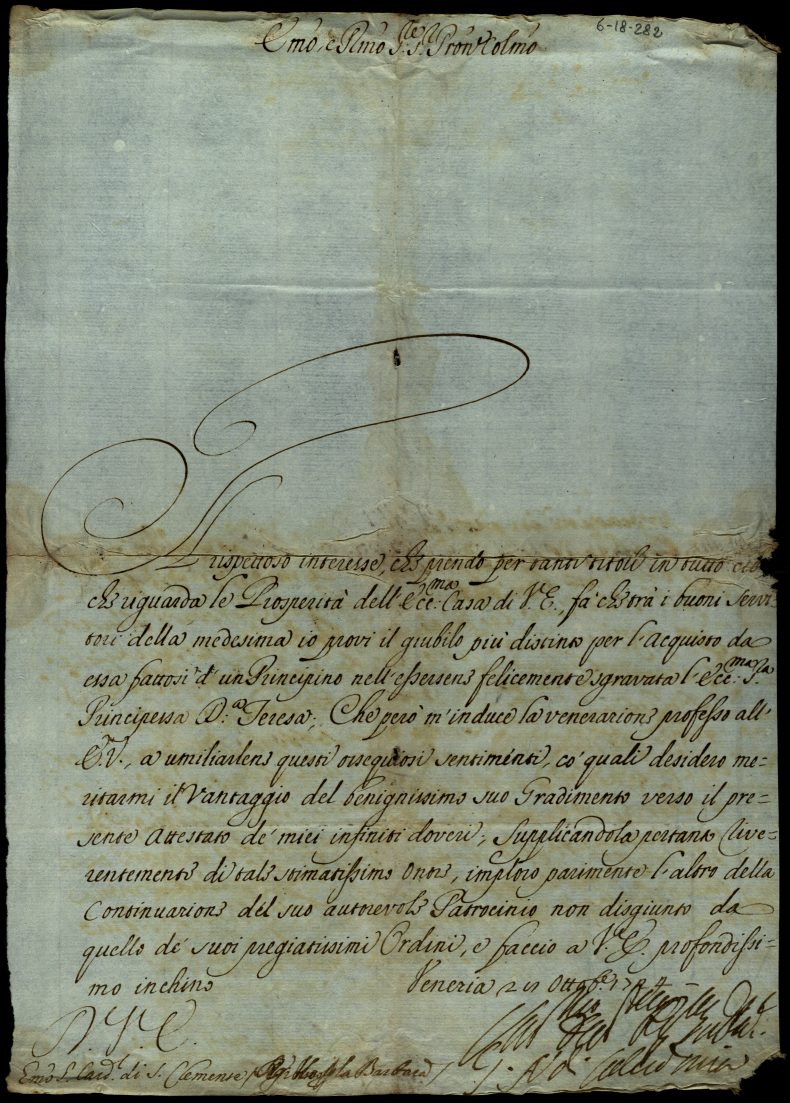 6-18-282
Emo, e Rmo Sre Sr Pron Colmo
Il rispettoso interesse, che prendo per tanti titoli in tutto ciò
che riguarda le Prosperità dell'Ecc:ma Casa di V.E., fà che trà i buoni Servi=
tori della medesima io provi il giubilo più distinto per l'Acquisto da
essa fattosi d'un Principino nell'essersene felicemente sgravata l'Ecc:ma S.ra
Principessa D.a Teresa; Che però m'induce la venerazione professo all'
E.V., a umiliarlene questi ossequiosi sentimenti, co' quali desidero me=
ritarmi il Vantaggio del benignissimo suo Gradimento verso il pre=
sente Attestato de' miei infiniti doveri; Supplicandola pertanto rive=
rentemente di tale stimatissimo Onore, imploro parimente l'altro della
Continuazione del suo autorevole Patrocinio non disgiunto da
quello de' suoi pregiatissimi Ordini, e faccio a V.E. profondissi=
mo inchino Venezia 2 Ottobre 1744
D.V.E.
Emo S. Card.l di S. Clemente / la Barbara /